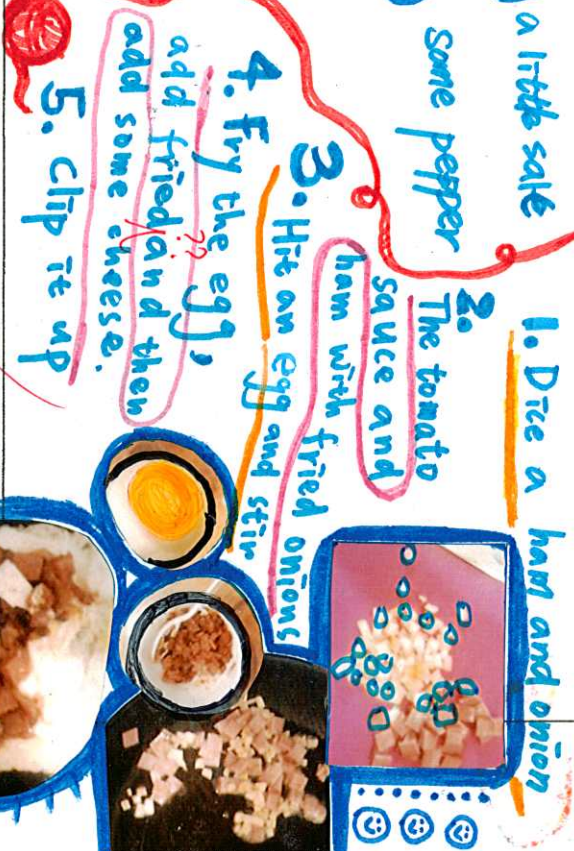 a little sale
some pepper
1. Dice a ham and onion
2. The tomato
sauce and
ham with fried onions
3. Hit an egg and stir
4. Fry the egg,
??
add fried and then
add some cheese.
5. Clip it up